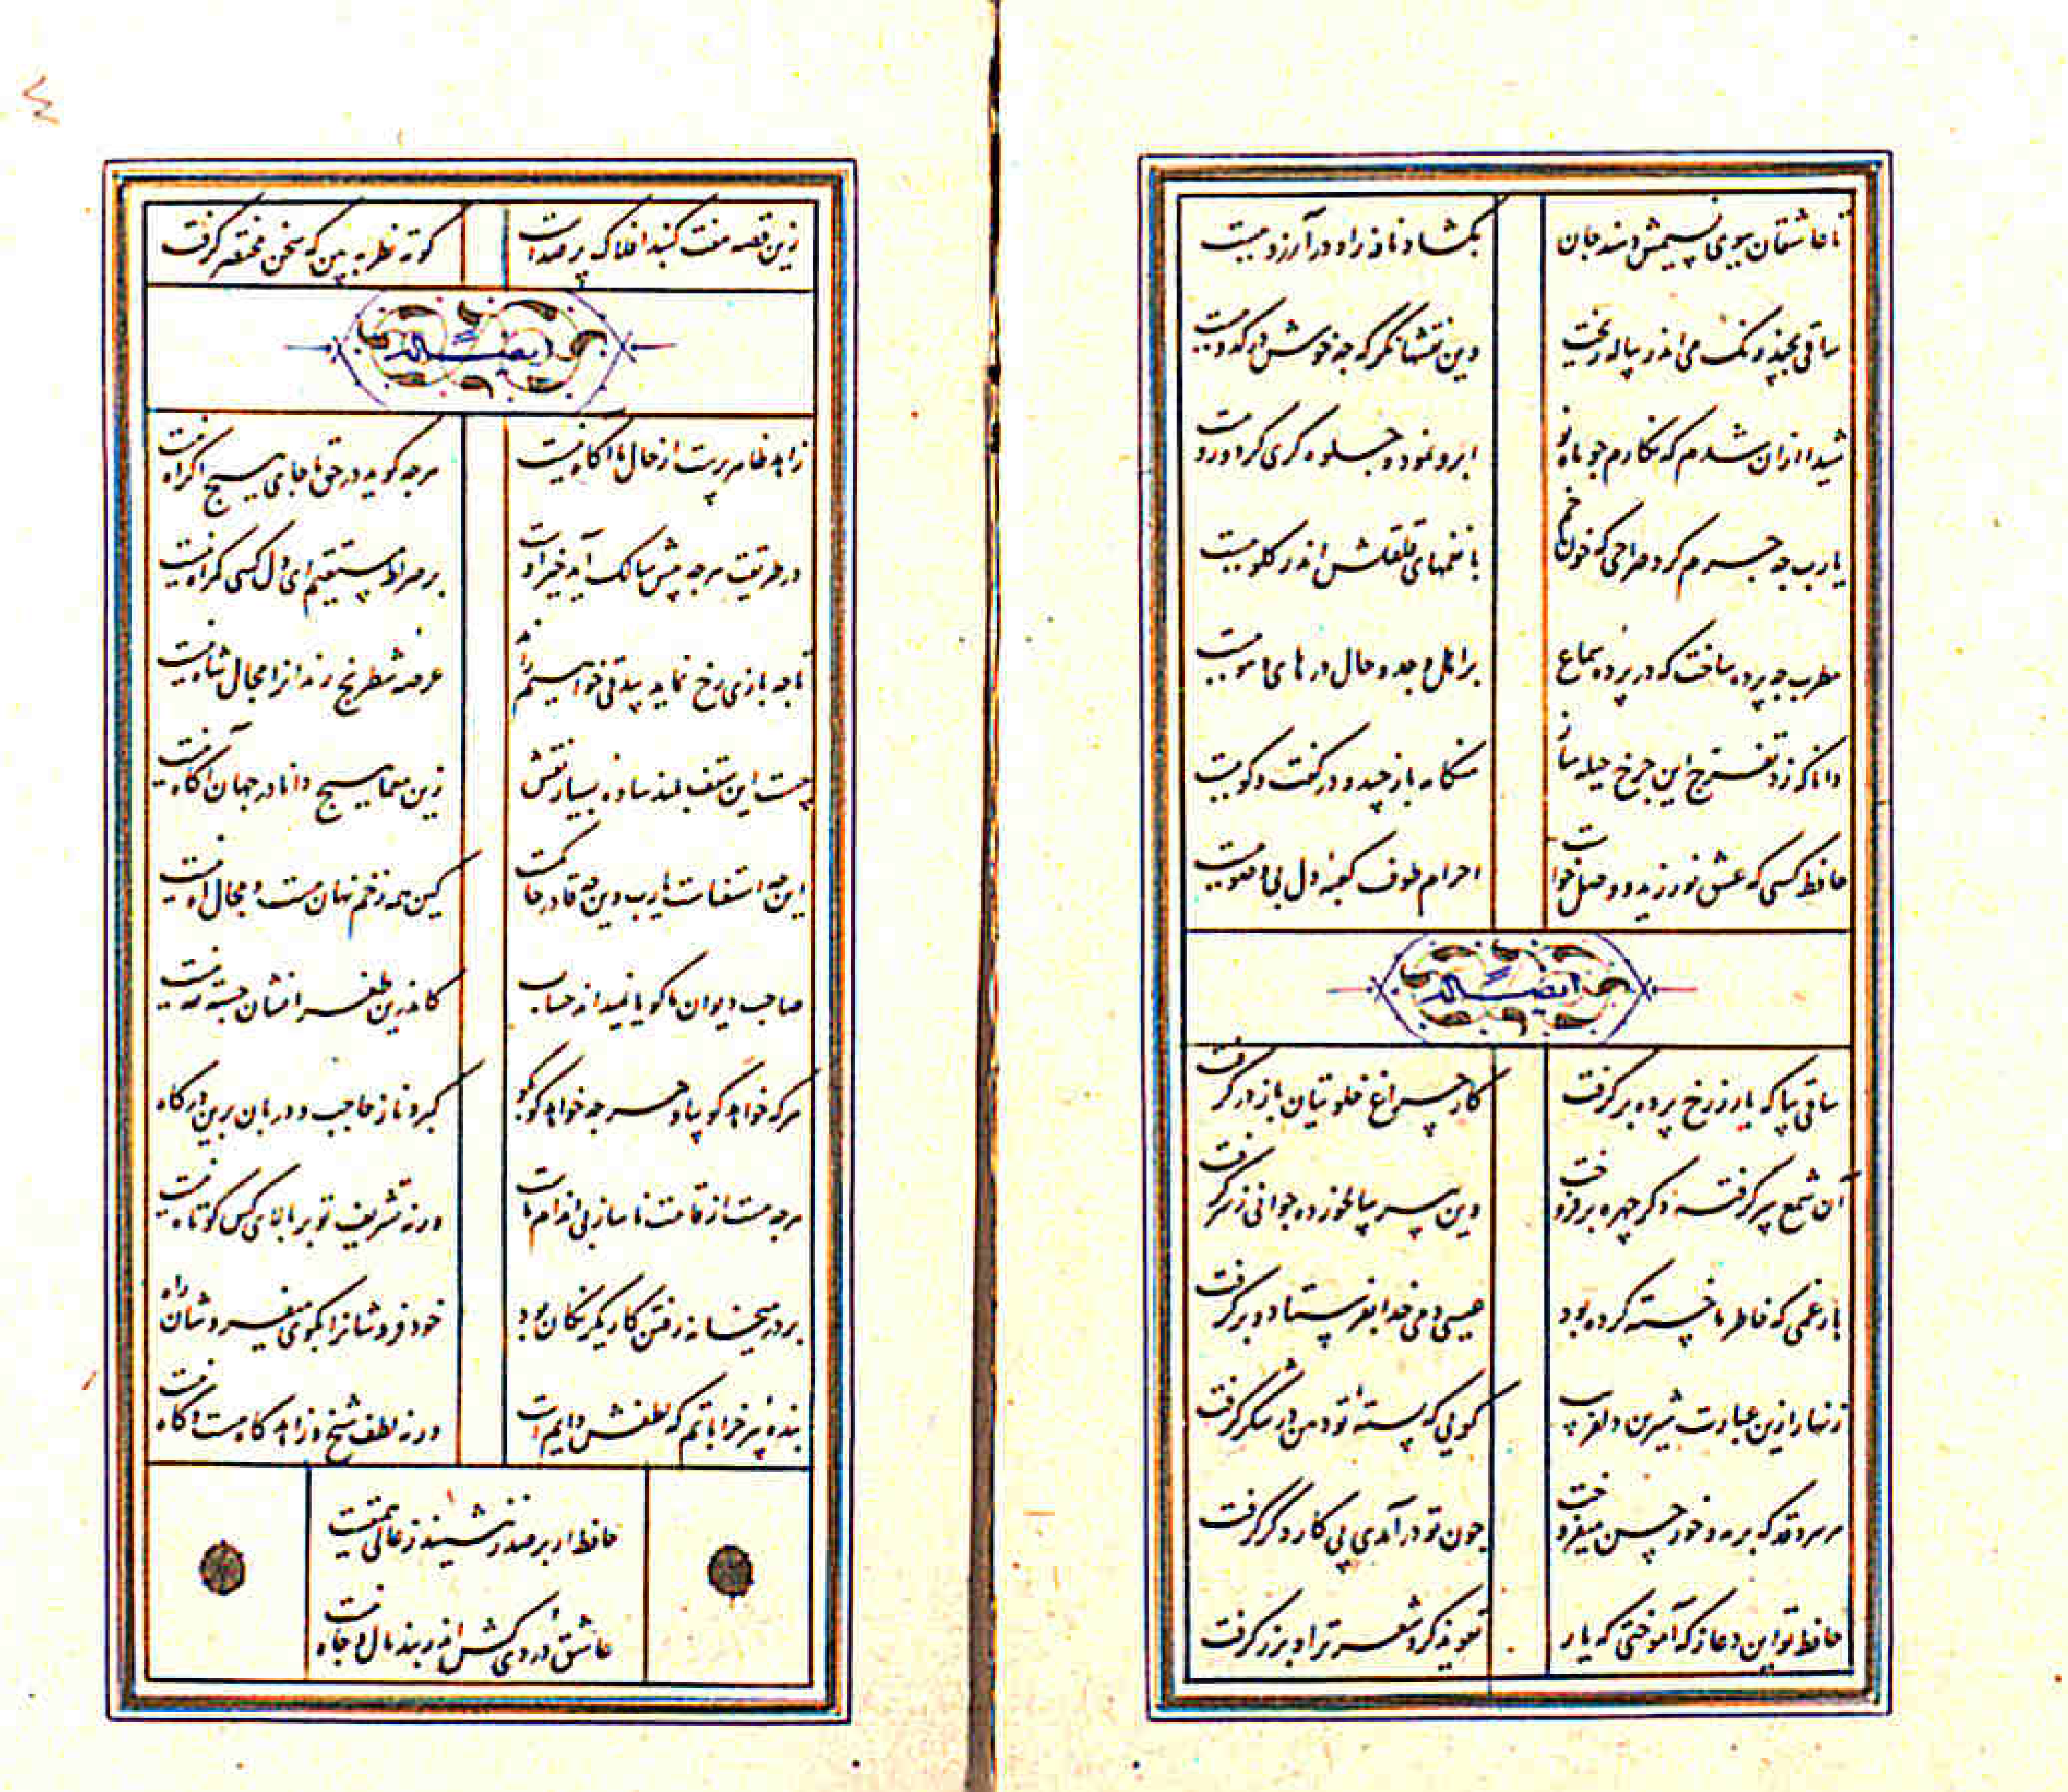 تا عاشقان ببوی نسیمش دهند جان
بکشاد نافه را و در آرزو ببست
ساقی بچند رنگ می اندر پیاله ریخت
وین نقشها نگر که چه خوش در کدو ببست
شیدا ازان شدم که نگارم چو ماه نو
ابرو نمود و جلوه گری کرد و رو ببست
یارب چه جرم کرد صراحی که خون خم
با نغمهای قلقلش اندر گلو ببست
مطرب چه پرده ساخت که در پرده سماع
بر اهل وجد و حال در های و هو ببست
دانا که زد تفرج این چرخ حیله ساز
هنگامه باز چید و در گفت و گو ببست
حافظ کسی که عشق نورزید و وصل خواست
احرام طوف کعبهٔ دل بی وضو ببست
ایضا له
ساقی بیا که یار ز رخ پرده بر گرفت
کار چراغ خلوتیان باز در گرفت
آن شمع سر گرفته دگر چهره بر فروخت
وین پیر سالخورده جوانی ز سر گرفت
بار غمی که خاطر ما خسته کرده بود
عیسی دمی خدا بفرستاد و بر گرفت
زنهار ازین عبارت شیرین دلفریب
گویی که پستهٔ تو دهن در شکر گرفت
هر سرو قد که بر مه و خور حسن میفروخت
چون تو در آمدی پی کار دگر گرفت
حافظ تو این دعا ز که آموختی که یار
تعویذ کرد شعر ترا و بزر گرفت
٤
زین قصه هفت گنبد افلاک پر صداست
کوته نظر به بین که سخن مختصر گرفت
ایضا له
زاهد ظاهر پرست از حال ما آگاه نیست
هرچه گوید در حق ما جای هیچ اکراه نیست
در طریقت هرچه پیش سالک آید خیر اوست
بر صراط مستقیم ای دل کسی گمراه نیست
تا چه بازی رخ نماید بیدقی خواهیم راند
عرصه شطرنج رندانرا مجال شاه نیست
چیست این سقف بلند ساده بسیار نقش
زین معما هیچ دانا در جهان آگاه نیست
این چه استغناست یارب وین چه قادر حاکمست
کین همه زخم نهان هست و مجال آه نیست
صاحب دیوان ما گویا نمیداند حساب
کاندرین طغرا نشان حسبة لله نیست
هرکه خواهد گو بیا و هرچه خواهد گو بگو
کبر و ناز حاجب و دربان برین درگاه
هرچه هست از قامت ناساز بی اندام ماست
ورنه تشریف تو بر بالای کس کوتاه نیست
بر در میخانه رفتن کار یکرنگان بود
خود فروشانرا بکوی میفروشان راه
بندهٔ پیر خراباتم که لطفش دایم است
ورنه لطف شیخ و زاهد گاه هست و گاه نیست
حافظ ار بر صدر ننشیند ز عالی همتیست
عاشق دردی کش اندر بند مال و جاه نیست